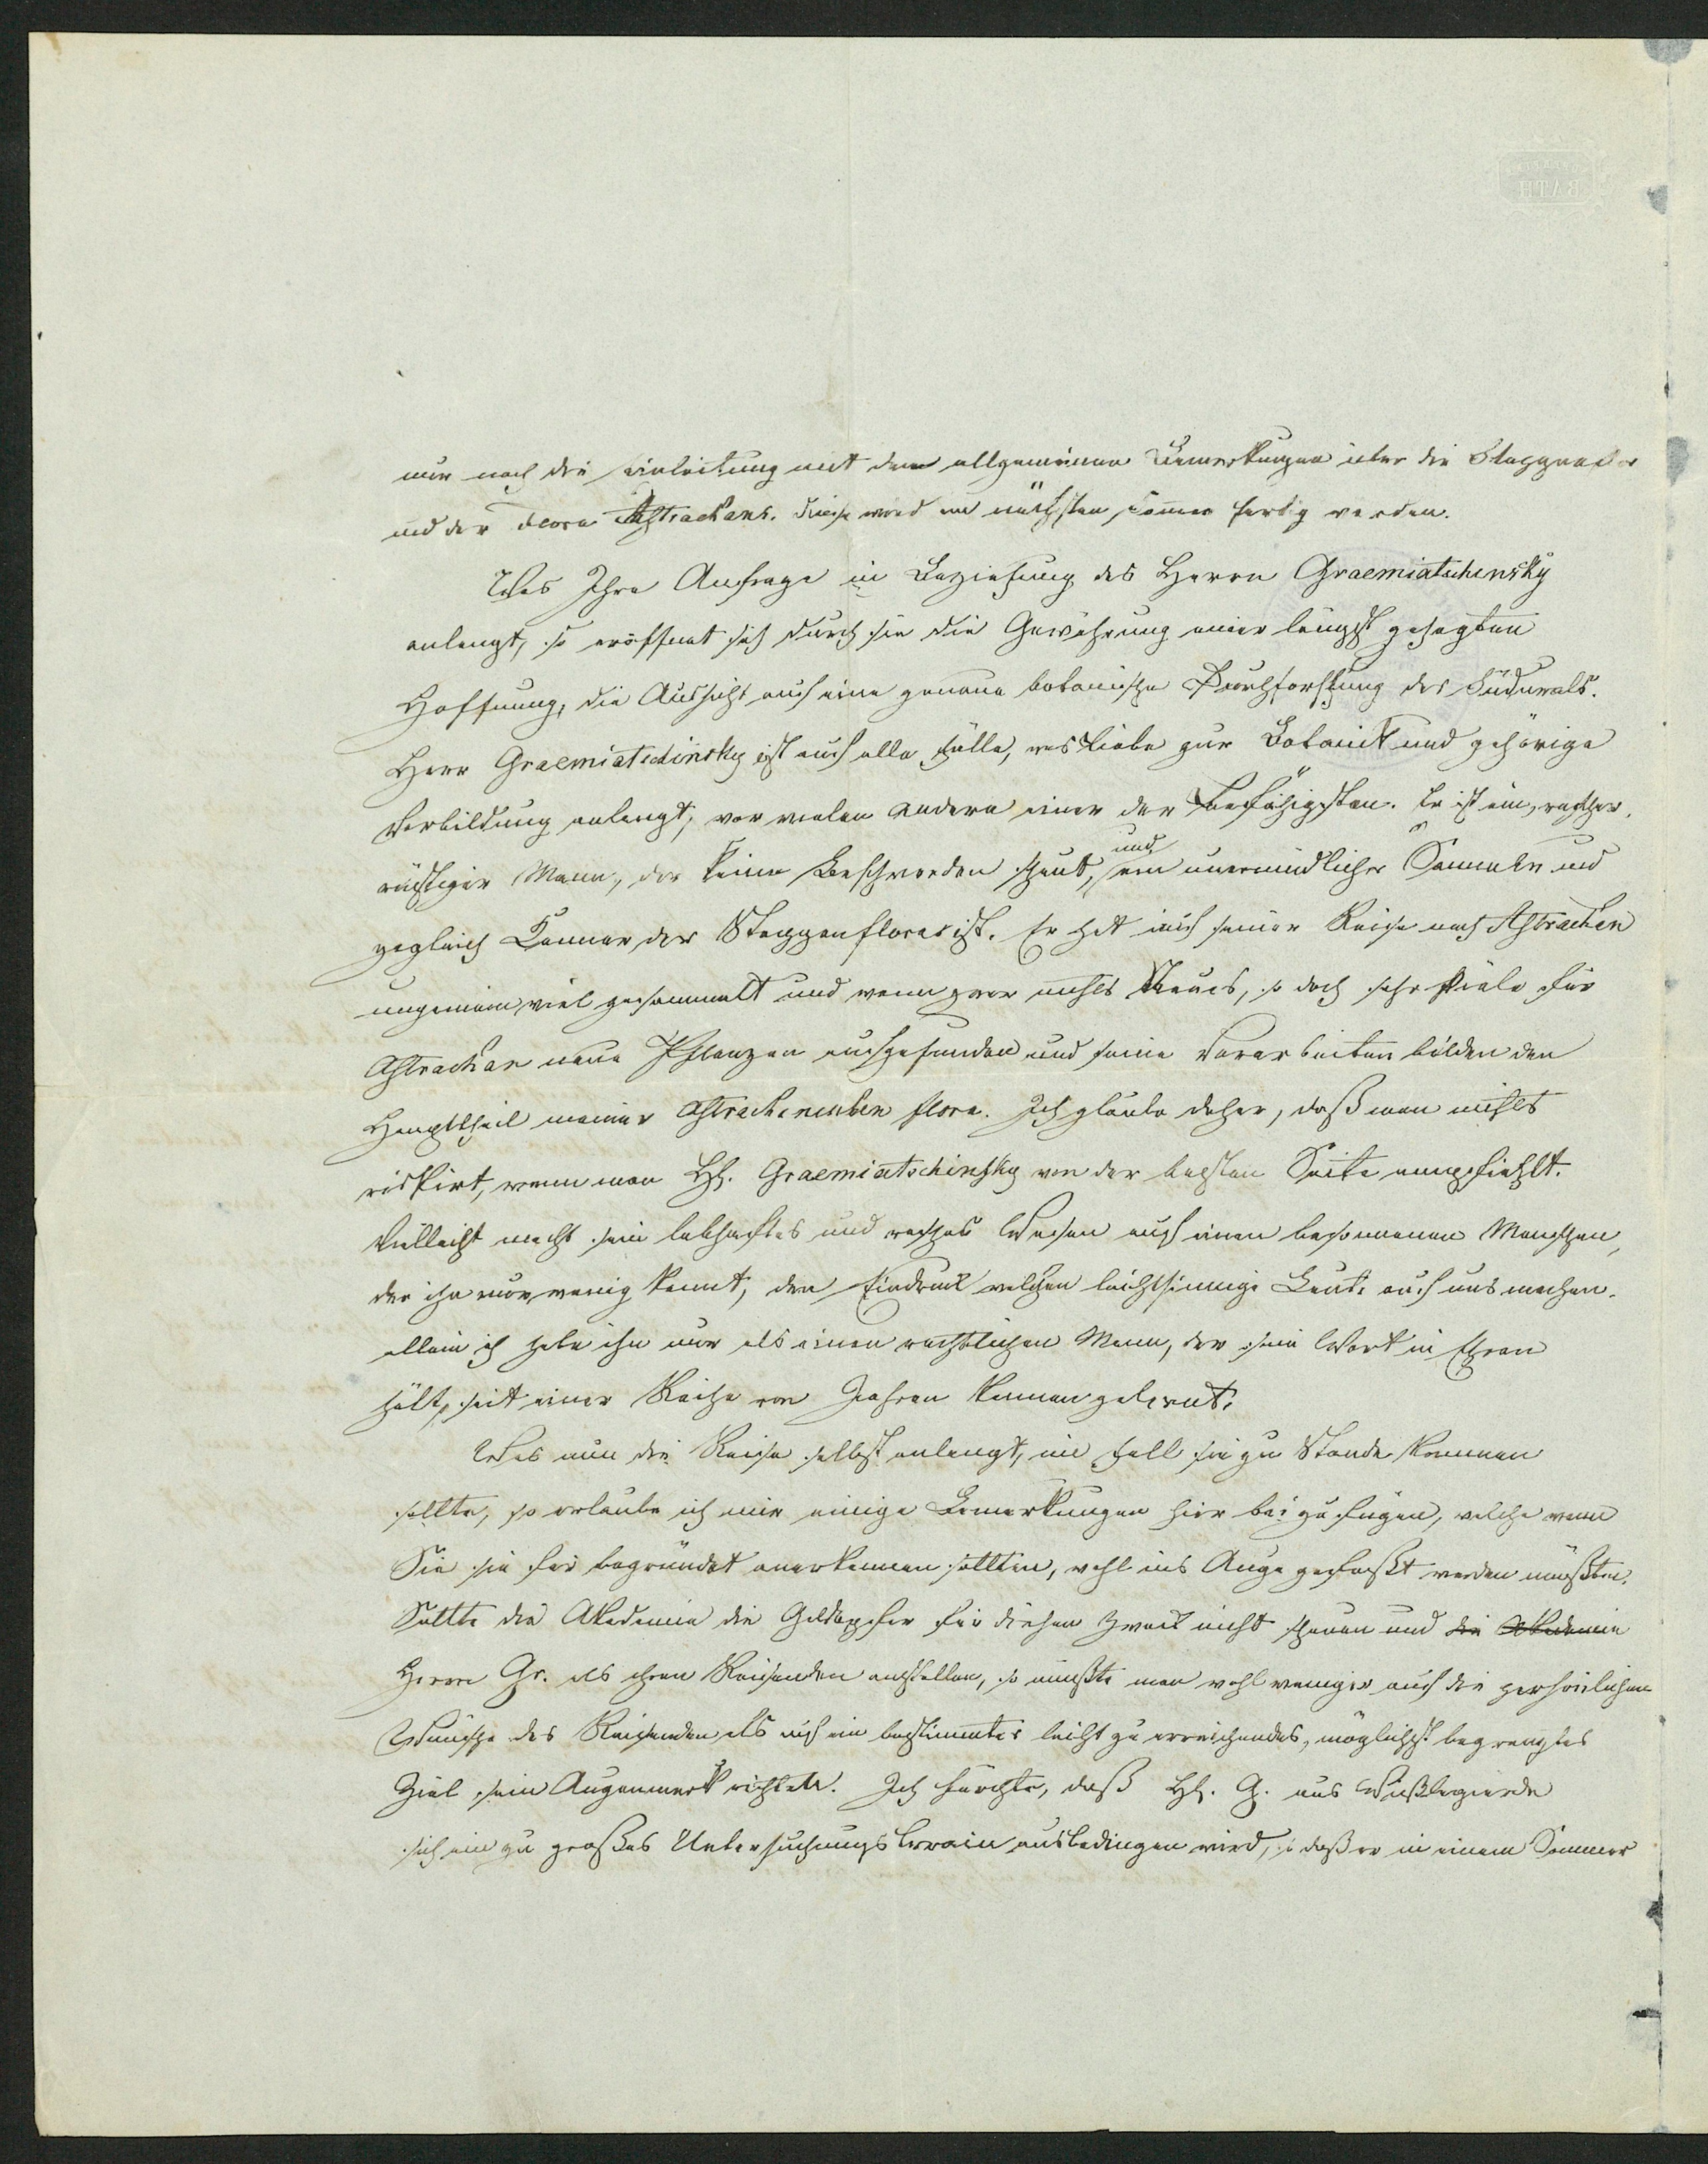 nur noch die Einleitung mit den allgemeinen Bemerkungen über die Steppenflor
und der Flora Astrachans. Diese wird im nächsten Sommer fertig werden.
Was Ihre Anfrage in Beziehung des Herrn Graemiatschensky
anlangt, so eröffnet sich durch sie die Gewährung einer längst gehegten
Hoffnung, die Aussicht auf eine genaue botanische Durchforschung des Südurals.
Herr Graemiatschinsky ist auf alle Fälle, was Liebe zur Botanik und gehörige
Vorbildung anlangt, vor vielen andern einer der Befähigsten. Er ist ein, rascher,
rüstiger Mann, der keine Beschwerden scheut, und ein unermüdlicher Sammler und
zugleich Kenner der Steppenflora ist. Er hat auf seiner Reise nach Astrachan
ungemein viel gesammelt und wenn zwar nichts Neues, so doch sehr viele für
Astrachan neue Pflanzen aufgefunden und seine Vorarbeiten bilden den
Haupttheil meiner Astrachanschen Flora. Ich glaube daher, daß man nichts
riskirt, wenn man H. Graemiatschinsky von der besten Seite empfiehlt.
Vielleicht macht sein lebhaftes und rasches Wesen auf einen besonnenen Menschen,
der ihn nur wenig kennt, den Eindruck welchen leichtsinnige Leute auf uns machen.
allein ich habe ihn nur als einen rechtlichen Mann, der sein Wort in Ehren
hält, seit einer Reihe von Jahren kennen gelernt.
Was nun die Reise selbst anlangt, im Fall sie zu Stande kommen
sollte, so erlaube ich mir einige Bemerkungen hier beizufügen, welche wenn
Sie sie für begründet anerkennen sollten, wohl ins Auge gefaßt werden müßten.
Sollte die Akademie die Geldopfer für diesen Zweck nicht scheuen und die Akademie
Herrn Gr. als ihren Reisenden anstellen, so müßte man wohl weniger auf die persönlichen
Wünsche des Reisenden als auf ein bestimmtes leicht zu erreichendes, möglichst begrenztes
Ziel sein Augenmerk richten. Ich fürchte, daß H. G. aus Wißbegierde
sich ein zu großes Untersuchungsterrain ausbedingen wird, so daß er in einem Sommer